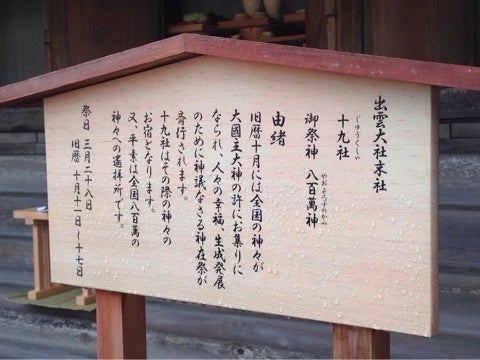 出雲大社末社
じゅうくしゃ
十九社
やおよろずのかみ
御祭神 八百萬神
由緒
旧暦十月には全国の神々が
大國主大神の許にお集りに
なられ、人々の幸福、生成発展
のために神議なさる神在祭が
斎行されます。
十九社はその際の神々の
お宿となります。
又、平素は全国八百萬の
神々への遥拝所です。
祭日 三月二十八日
旧暦 十月十一日〜十七日